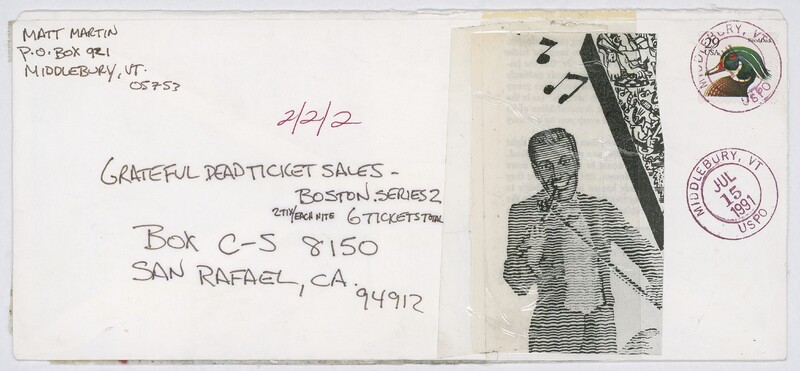 MATT MARTIN
P.O. BOX 921
MIDDLEBURY, VT.
05753
2/2/2
GRATEFUL DEAD TICKET SALES -
BOSTON. SERIES 2
2 TIX/EACH NITE 6 TICKETS TOTAL
BOX C-S 8150
SAN RAFAEL, CA.
94912
29
USA
MIDDLEBURY, VT
USPO
MIDDLEBURY, VT
JUL
15
1991
USPO